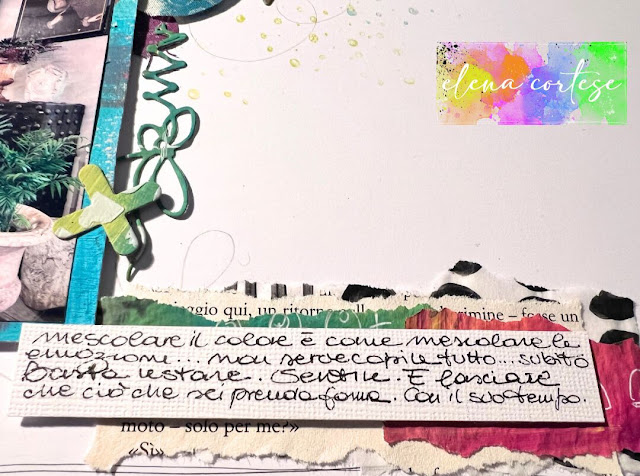 elena cortese
viaggio qui, un ritorno
rimine – forse un
mescolare il colore è come mescolare le
emozioni... non serve capire tutto... subito
Basta restare. Sentire. E lasciare
che ciò che sei prenda forma. Con il suo tempo.
moto – solo per me?»
«Sì»